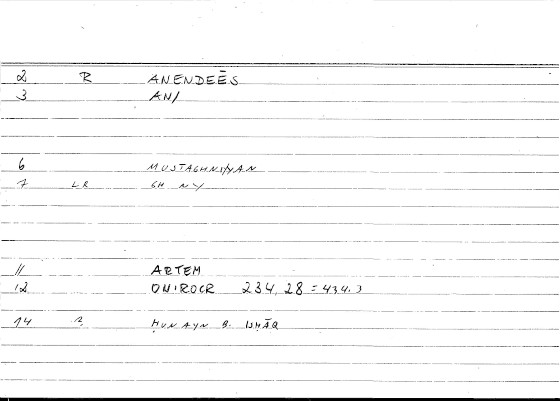 2 R ANENDEĒS
3 AN/
6 MUSTAGHNIYAN
7 LR GH NY
11 ARTEM
12 ONIROCR 234, 28 = 434.3
14 2 ḤUNAYN B. ISḤĀQ